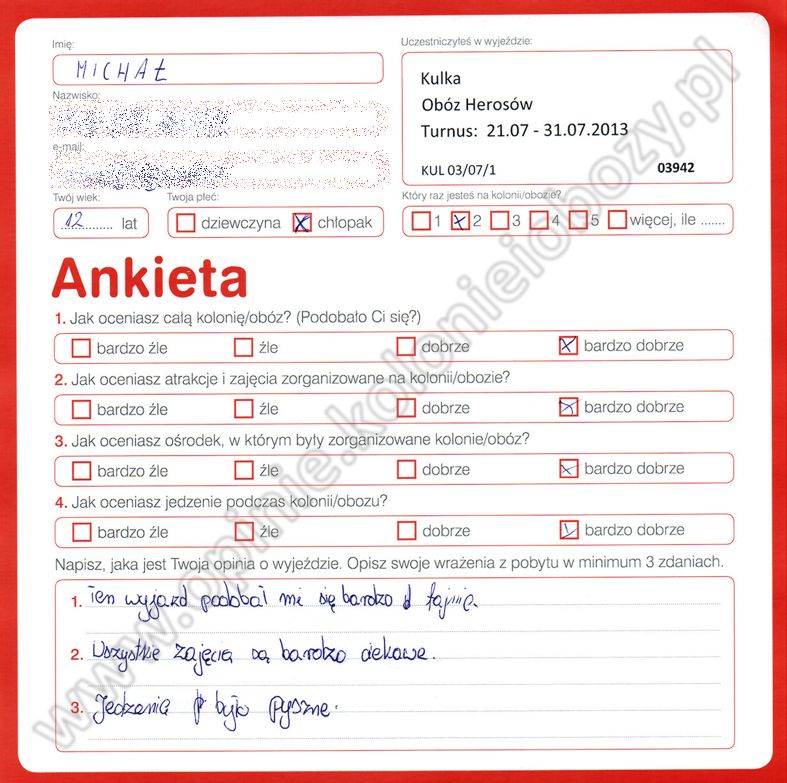 Imię:
MICHAŁ
Uczestniczyłeś w wyjeździe:
Kulka
Obóz Herosów
Turnus: 21.07 - 31.07.2013
KUL 03/07/1 03942
Nazwisko:
e-mail:
Twój wiek:
12 lat
Twoja płeć:
dziewczyna chłopak
Który raz jesteś na kolonii/obozie?
1 2 3 4 5 więcej, ile .......
Ankieta
1. Jak oceniasz całą kolonię/obóz? (Podobało Ci się?)
bardzo źle źle dobrze bardzo dobrze
2. Jak oceniasz atrakcje i zajęcia zorganizowane na kolonii/obozie?
bardzo źle źle dobrze bardzo dobrze
3. Jak oceniasz ośrodek, w którym były zorganizowane kolonie/obóz?
bardzo źle źle dobrze bardzo dobrze
4. Jak oceniasz jedzenie podczas kolonii/obozu?
bardzo źle źle dobrze bardzo dobrze
Napisz, jaka jest Twoja opinia o wyjeździe. Opisz swoje wrażenia z pobytu w minimum 3 zdaniach.
1. Ten wyjazd podobał mi się bardzo fajnie.
2. Wszystkie zajęcia są bardzo ciekawe.
3. Jedzenia było pyszne.
www.opinie.kolonieiobozy.pl